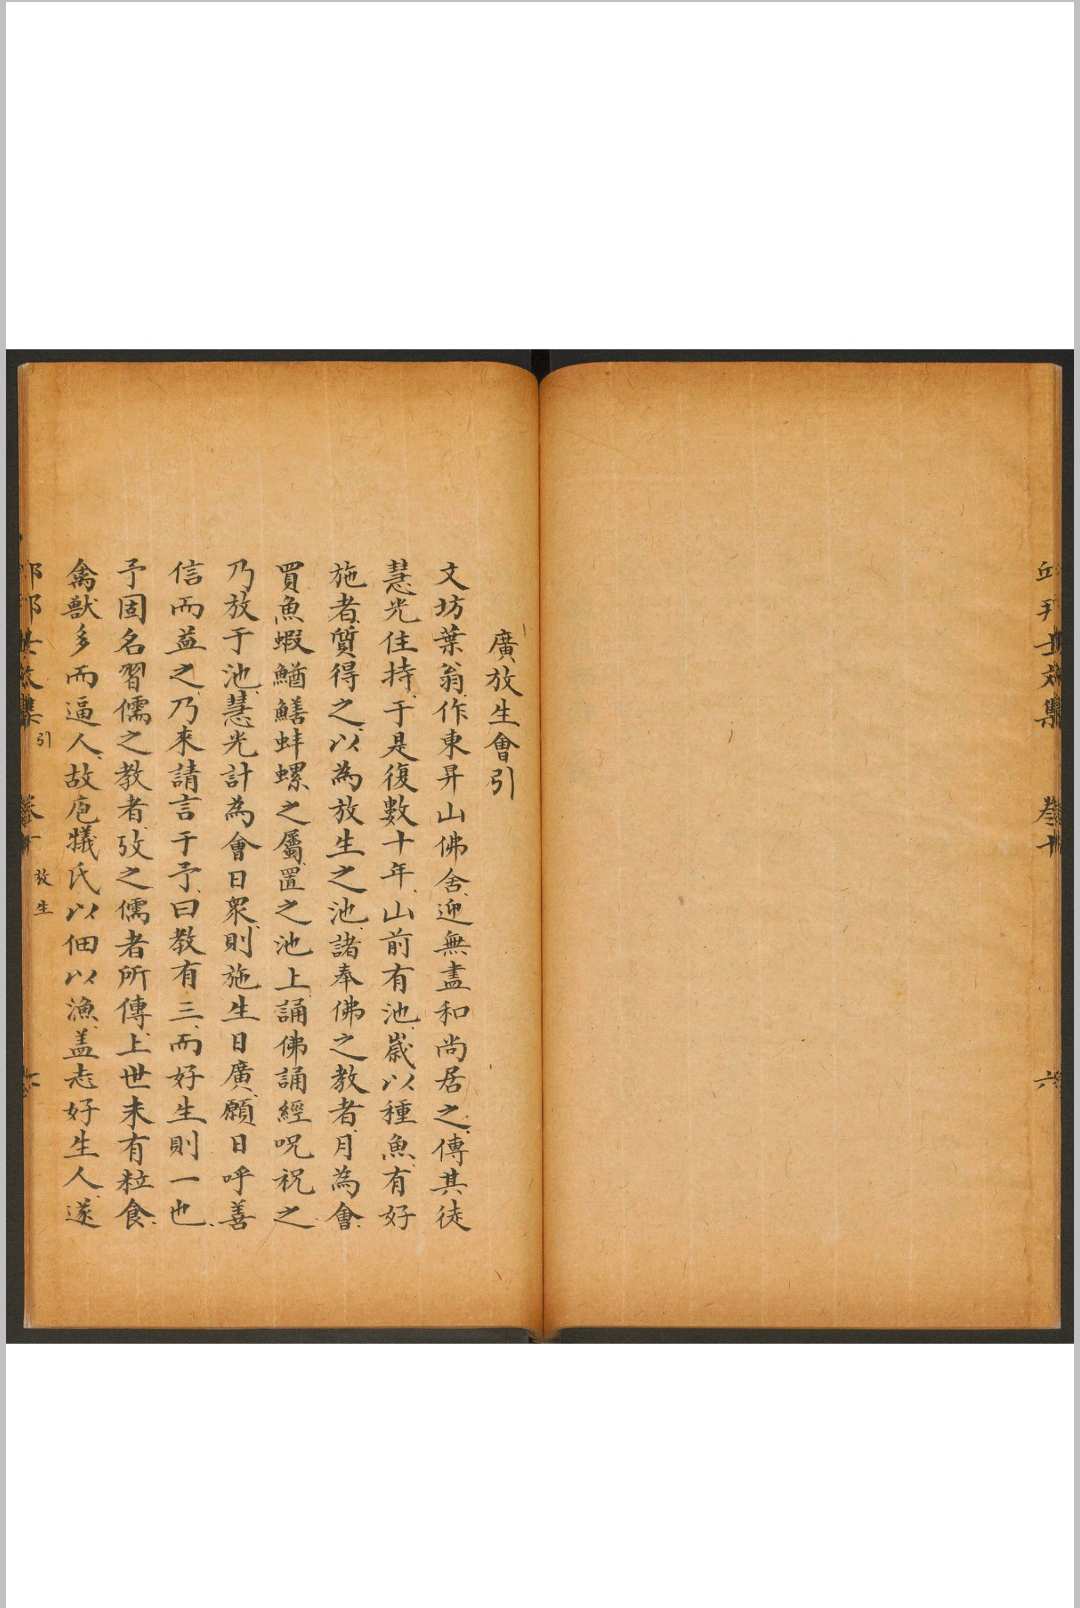 廣放生會引
文坊葉翁作東昇山佛舍迎無盡和尚居之傳其徒
慧光住持于是復數十年山前有池歲以種魚有好
施者質得之以為放生之池諸奉佛之教者月為會
買魚蝦鰌鱔蚌螺之屬置之池上誦佛誦經呪祝之
乃放于池慧光計為會日衆則施生日廣願日呼善
信而益之乃來請言于予曰教有三而好生則一也
予固名習儒之教者攷之儒者所傳上世未有粒食
禽獸多而逼人故庖犠氏以佃以漁盖志好生人遂
引
放生
邱邦士文集 卷十 六